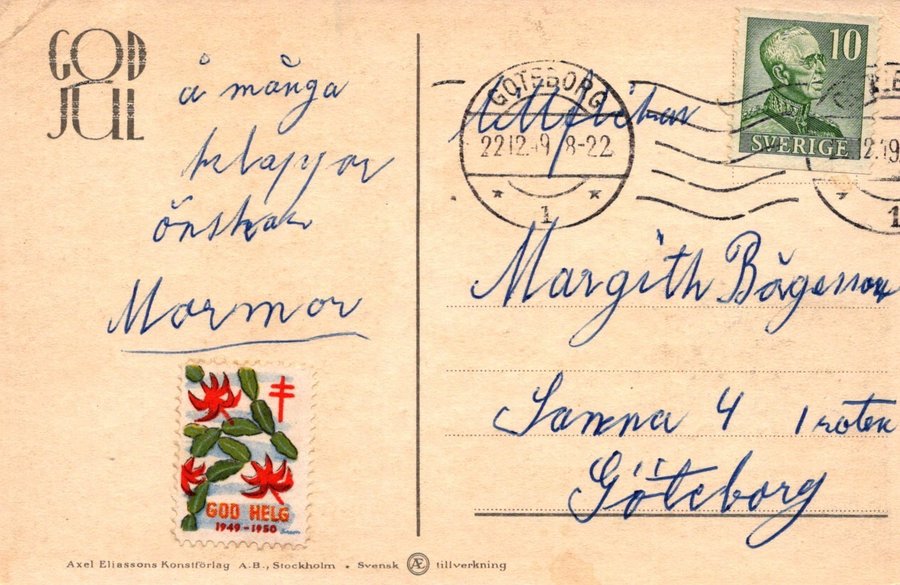 GOD
JUL
å många
klappar
önskar
Mormor
GOD HELG
1949-1950
Axel Eliassons Konstförlag A.B., Stockholm • Svensk Æ tillverkning
GÖTEBORG
22 12.49 8-22
1
10
SVERIGE
Margith
Sanna 4 1 roten
Göteborg